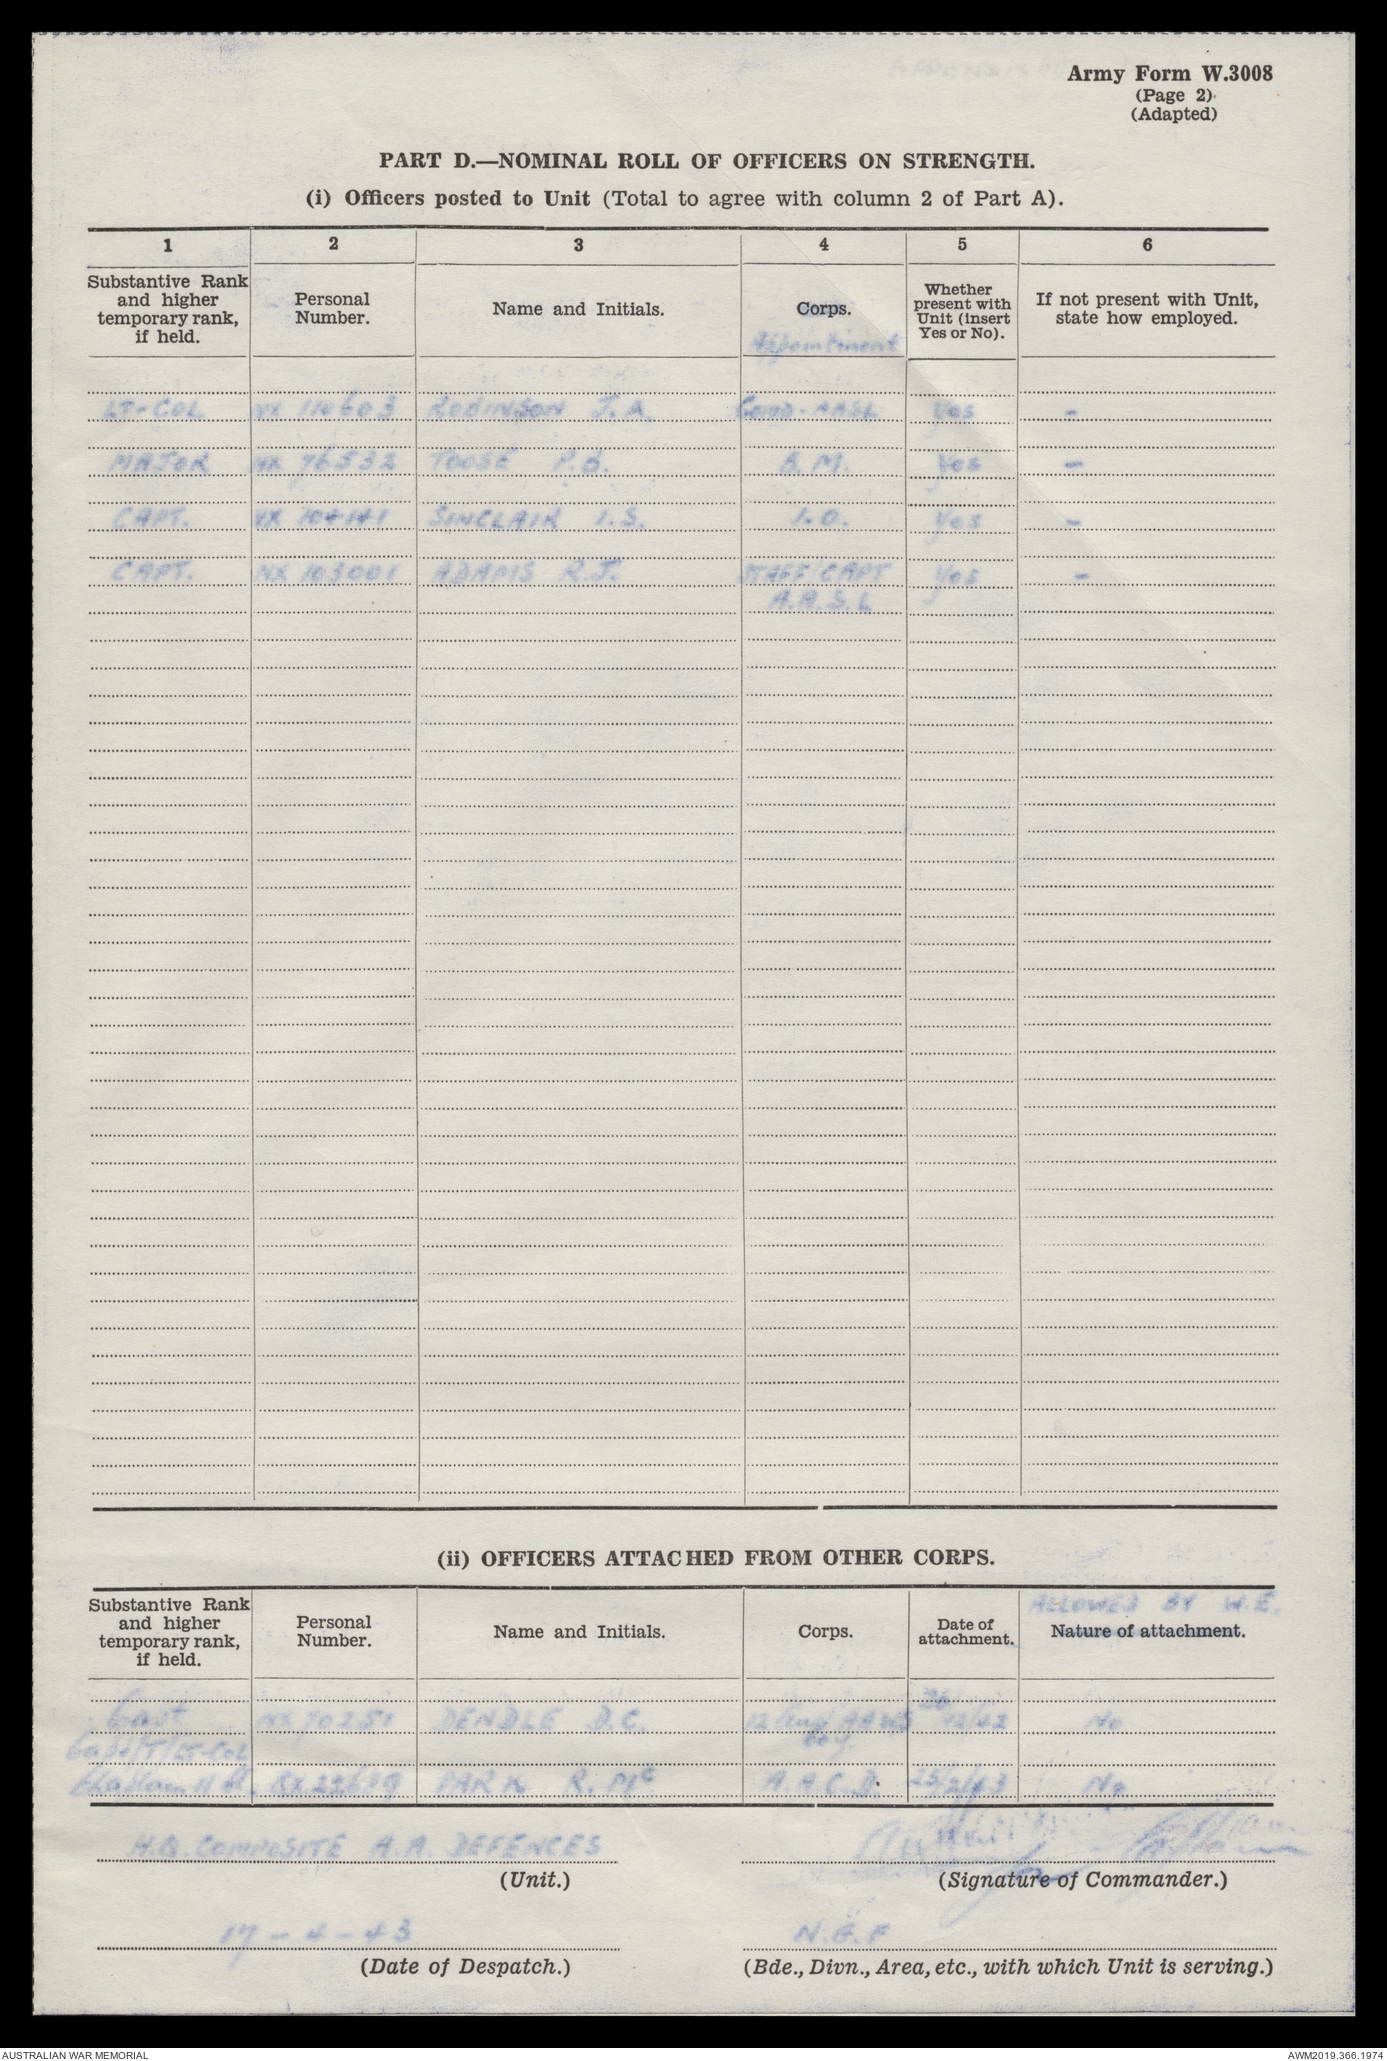 Army Form W.3008
(Page 2)
(Adapted)
PART D.—NOMINAL ROLL OF OFFICERS ON STRENGTH.
(i) Officers posted to Unit (Total to agree with column 2 of Part A).
1 2 3 4 5 6
Substantive Rank and higher temporary rank, if held.
Personal Number.
Name and Initials.
Corps.
Appointment
Whether present with Unit (insert Yes or No).
If not present with Unit, state how employed.
LT-COL 110603 ROBINSON J.A. Comd-AASL Yes -
MAJOR NX 76532 TOOSE P.B. B.M. Yes -
CAPT. SINCLAIR I.S. I.O. Yes -
CAPT. NX 103001 ADAMS R.J. STAFF/CAPT Yes -
A.A.S.L
(ii) OFFICERS ATTACHED FROM OTHER CORPS.
Substantive Rank and higher temporary rank, if held.
Personal Number.
Name and Initials.
Corps.
Date of attachment.
ALLOWED BY W.E.
Nature of attachment.
Capt NX 70251 DENDLE D.C. 12/42 No
Capt/T/Lt-Col
PARK R. Mc A.A.C.D. 25/2/43 No
H.Q. COMPOSITE A.A. DEFENCES
(Unit.)
(Signature of Commander.)
17-4-43
(Date of Despatch.)
N.G.F
(Bde., Divn., Area, etc., with which Unit is serving.)
AUSTRALIAN WAR MEMORIAL
AWM2019.366.1974